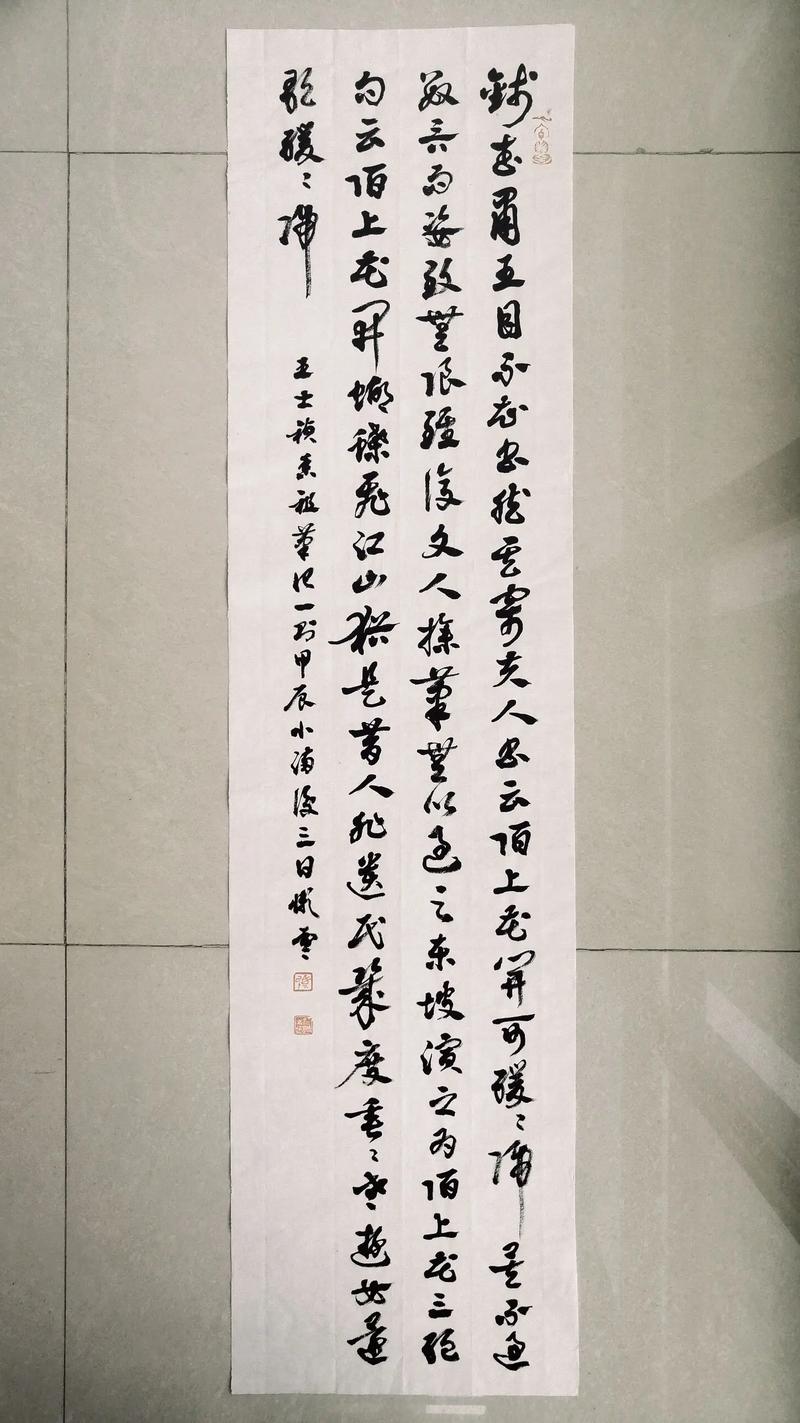 錢武肅王目不知書然其寄夫人書云陌上花開可緩〻歸矣不過
數言而姿致無限雖復文人操筆無以過之東坡演之為陌上花三絕
句云陌上花開蝴蝶飛江山猶是昔人非遺民幾度垂〻老遊女還
歌緩〻歸
王士禎香祖筆記一則甲辰小滿後三日